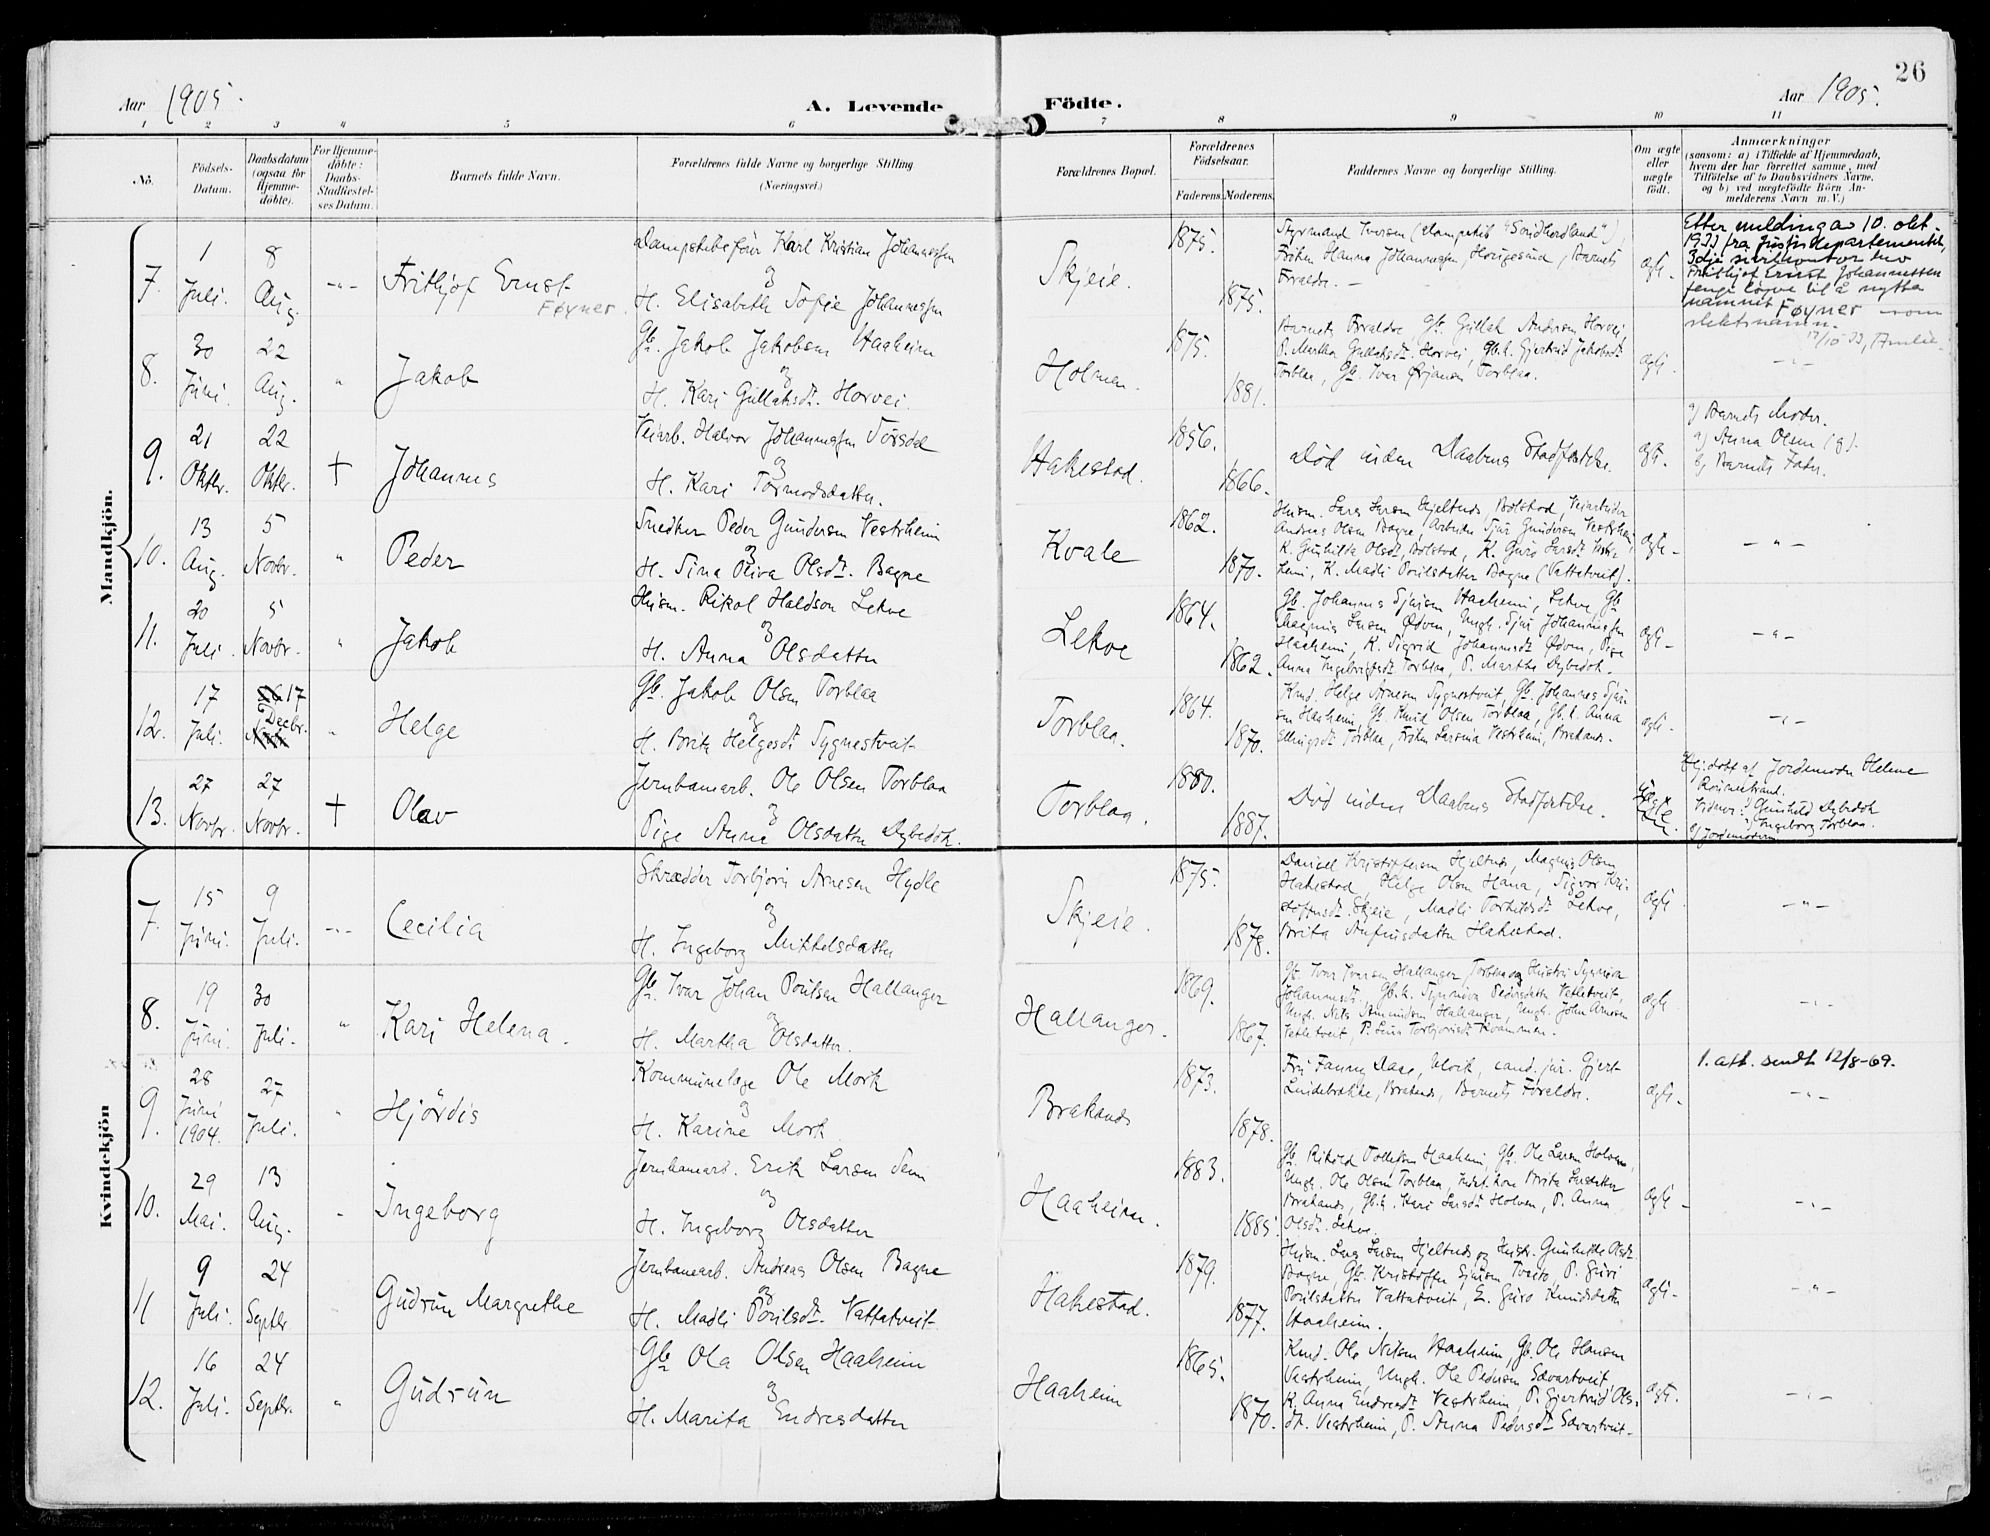 26
Aar 1905.
A. Levende Födte.
Aar 1905.
1 2 3 4 5 6 7 8 9 10 11
No.
Födsels-Datum.
Daabsdatum (ogsaa for Hjemme-döbte).
For Hjemme-döbte: Daabs-Stadfæstel-ses Datum.
Barnets fulde Navn.
Forældrenes fulde Navne og borgerlige Stilling
(Næringsvei.)
Forældrenes Bopæl.
Forældrenes Födselsaar.
Faderens. Moderens.
Faddernes Navne og borgerlige Stilling.
Om ægte eller uægte födt.
Anmærkninger
(saasom: a) i Tilfælde af Hjemmedaab,
hvem der har forrettet samme, med
Tilföielse af to Daabsvidners Navne,
og b) ved uægtefödte Börn An-
melderens Navn m. V.)
Mandkjön.
7. 1 Juli. 8 Aug. Frithjof Ernst
Føyner.
Dampskibsfører Karl Kristian Johannessen
og
H. Elisabeth Sofie Johannessen
Skjeie.
1875. 1875.
Styrmand Iversen (dampskib "Søndhordland"),
Frøken Hanna Johannessen, Haugesund, Barnets
Forældre.
ægte.
Etter melding av 10. okt.
1933 fra Justisdepartementet,
3dje sivilkontor hev
Frithjof Ernst Johannessen
fenge løyve til å nytta
namnet Føyner som
slektsnamn.
17/10-33,
8. 30 Juni. 22 Aug. Jakob
Gb. Jakob Jakobsen Haaheim
og
H. Kari Gullaksdt. Horvei.
Holmen.
1875. 1881.
Barnets Forældre, Gb. Gullak Andersen Horvei
P. Martha Gullaksdt. Horvei, Gb.k. Gjertrud Jakobsdt
Torblaa, Gb. Ivar Ørjansen Torblaa.
ægte.
9. 21 Oktbr. 22 Oktbr. † Johannes
Veiarb. Halvor Johannessen Torsdal
og
H. Kari Tormodsdatter.
Hakestad.
1856. 1866.
Død inden Daabens Stadfæstelse.
ægte.
Barnets Moder.
a) Anna Olsen
b) Barnets Fader.
10. 13 Aug. 5 Novbr. Peder
Snedker Peder Gundersen Vestrheim
og
H. Sina Oliva Olsdt. Bagne
Kvale
1862. 1870.
Husm. Lars Larsen Hjeltnes, Bolstad, Veiarbeider
Andreas Olsen Bagne, Arbeider Sjur Gundersen Vestrheim,
K. Gunhilda Olsdt, Bolstad, K. Guro Larsdt Vestr-
heim, K. Madli Poulsdatter Bagne (Vattatveit).
ægte
11. 20 Juli. 5 Novbr. Jakob
Husm. Rikol Haldson Lekve
og
H. Anna Olsdatter
Lekve
1864. 1862.
Gb. Johannes Sjursen Haaheim, Lekve, Gb.
Magnus Larsen Ødven, Ungk. Sjur Johannessen
Haaheim, K. Sigrid Johannesdt Ødven, Pige
Anna Ingebrigtsdt Torblaa, P. Martha Dybedok.
ægte
12. 17 Juli. 17 Decbr. Helge
Gb. Jakob Olsen Torblaa
og
H. Brita Helgesdt Sygnestveit
Torblaa.
1864. 1870.
Kmd. Helge Arnesen Sygnestveit, Gb. Johannes Sjur-
sen Haaheim, Gb. Knud Olsen Torblaa, Gb.k. Anna
Ellingsdt Torblaa, Frøken Larsina Vestrheim, Brakanes.
ægte.
13. 27 Novbr. 27 Novbr. † Olav
Jernbanearb. Ole Olsen Torblaa
og
Pige Anna Olsdatter Dybedok.
Torblaa.
1880. 1887.
Død inden Daabens Stadfæstelse.
Hj.døbt af Jordemoder Helene
Vidner: Gunhild Dybedok
Ingeborg Torblaa.
b) Jordemoderen
Kvindekjön
7. 15 Juni. 9 Juli. Cecilia
Skrædder Torbjørn Arnesen Hydle
og
H. Ingeborg Mikkelsdatter
Skjeie.
1875. 1878.
Daniell Kristoffersen Hjeltnes, Magnus Olsen
Hakestad, Helge Olsen Hana, Sigvor Kri-
stoffersdt. Skjeie, Madli Torkelsdt Lekve,
Brita Anfinsdatter Hakestad.
ægte
8. 19 Juni. 30 Juli. Kari Helena.
Gb. Ivar Johan Poulsen Hallanger
og
H. Martha Olsdatter.
Hallanger.
1869. 1867.
Gb. Ivar Iversen Hallanger, Torblaa og Hustru Synneva
Johannesdt., Gb.k. Synneva Pedersdatter Vatletveit,
Ungk. Nils Amundsen Hallanger, Ungk. John Arnesen
Vatletveit, P. Lina Torbjørnsdt Kvammen.
ægte
9. 28 Juni 1904. 27 Juli. Hjördis
Kommunelæge Ole Mork
og
H. Karine Mork
Brakanes
1873. 1878.
Fru Fanny Daae, Ulvik, cand. jur. Gjert
Lindebrække, Brakanes, Barnets Forældre.
ægte.
1. att. sendt 12/8-69.
10. 29 Mai. 13 Aug. Ingeborg
Jernbanearb. Erik Larsen Sem
og
H. Ingeborg Olsdatter
Haaheim.
1883. 1885.
Gb. Rikold Tollefsen Haaheim, Gb. Ole Larsen Holven,
Ungk. Ole Olsen Torblaa, Brita Larsdatter
Brakanes, Gb.k. Kari Larsdt Holven, P. Anna
Olsdt. Lekve.
ægte
11 9 Juli. 24 Septbr. Gudrun Margrethe
Jernbanearb. Andreas Olsen Bagne
og
H. Madli Poulsdt. Vattatveit
Hakestad.
1879. 1877.
Husm. Lars Larsen Hjeltnes og Hustr. Gunhilda Olsdt.
Bagne, Gb. Kristoffer Sjursen Tveito, P. Guri
Poulsdatter Vattatveit, E. Guro Knudsdatter
Haaheim.
ægte.
12. 16 Juli. 24 Septbr. Gudrun
Gb. Ola Olsen Haaheim
og
H. Marita Endresdatter
Haaheim
1865. 1870.
Kmd. Ole Nilsen Haaheim, Gb. Ole Hansen
Vestrheim, Ungk. Ole Pedersen Sævartveit,
K. Anna Endresdt Vestrheim, P. Gjertrud Ols-
dt. Vestrheim, P. Anna Pedersdt Sævartveit.
ægte.